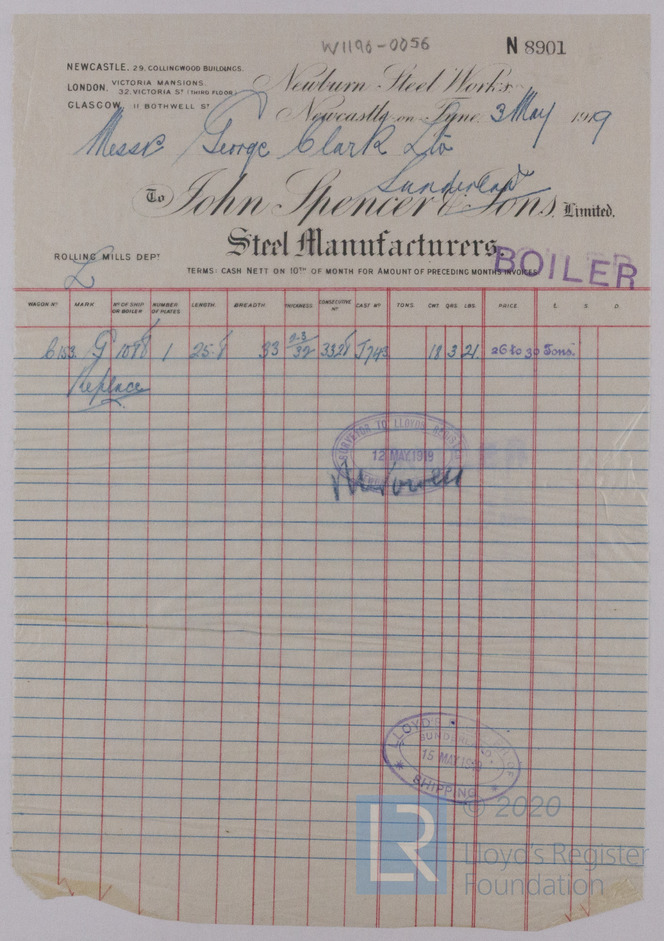 W1190-0056
N 8901
NEWCASTLE, 29, COLLINGWOOD BUILDINGS.
LONDON, VICTORIA MANSIONS, 32, VICTORIA ST (THIRD FLOOR)
GLASGOW, 11 BOTHWELL ST
Newburn Steel Works
Newcastle on Tyne, 3 May 1919
Messrs George Clark Ltd
Sunderland
To John Spencer & Sons, Limited.
Steel Manufacturers
BOILER
ROLLING MILLS DEPT
TERMS: CASH NETT ON 10TH OF MONTH FOR AMOUNT OF PRECEDING MONTHS INVOICES
WAGON No MARK No OF SHIP OR BOILER NUMBER OF PLATES LENGTH. BREADTH THICKNESS CONSECUTIVE No CAST No TONS. CWT QRS. LBS. PRICE. £ S D.
1 33 18 3 21. 26 to 30 Tons.
Replace
SURVEYOR TO LLOYDS
12 MAY 1919
LLOYD'S
SUNDERLAND
15 MAY 1919
SHIPPING
LR
© 2020
Lloyd's Register
Foundation